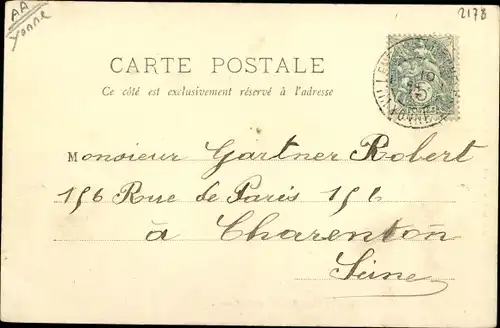 AA
Yonne
2178
CARTE POSTALE
Ce côté est exclusivement réservé à l'adresse
5
Monsieur Gartner Robert
156 Rue de Paris 156
à Charenton
Seine